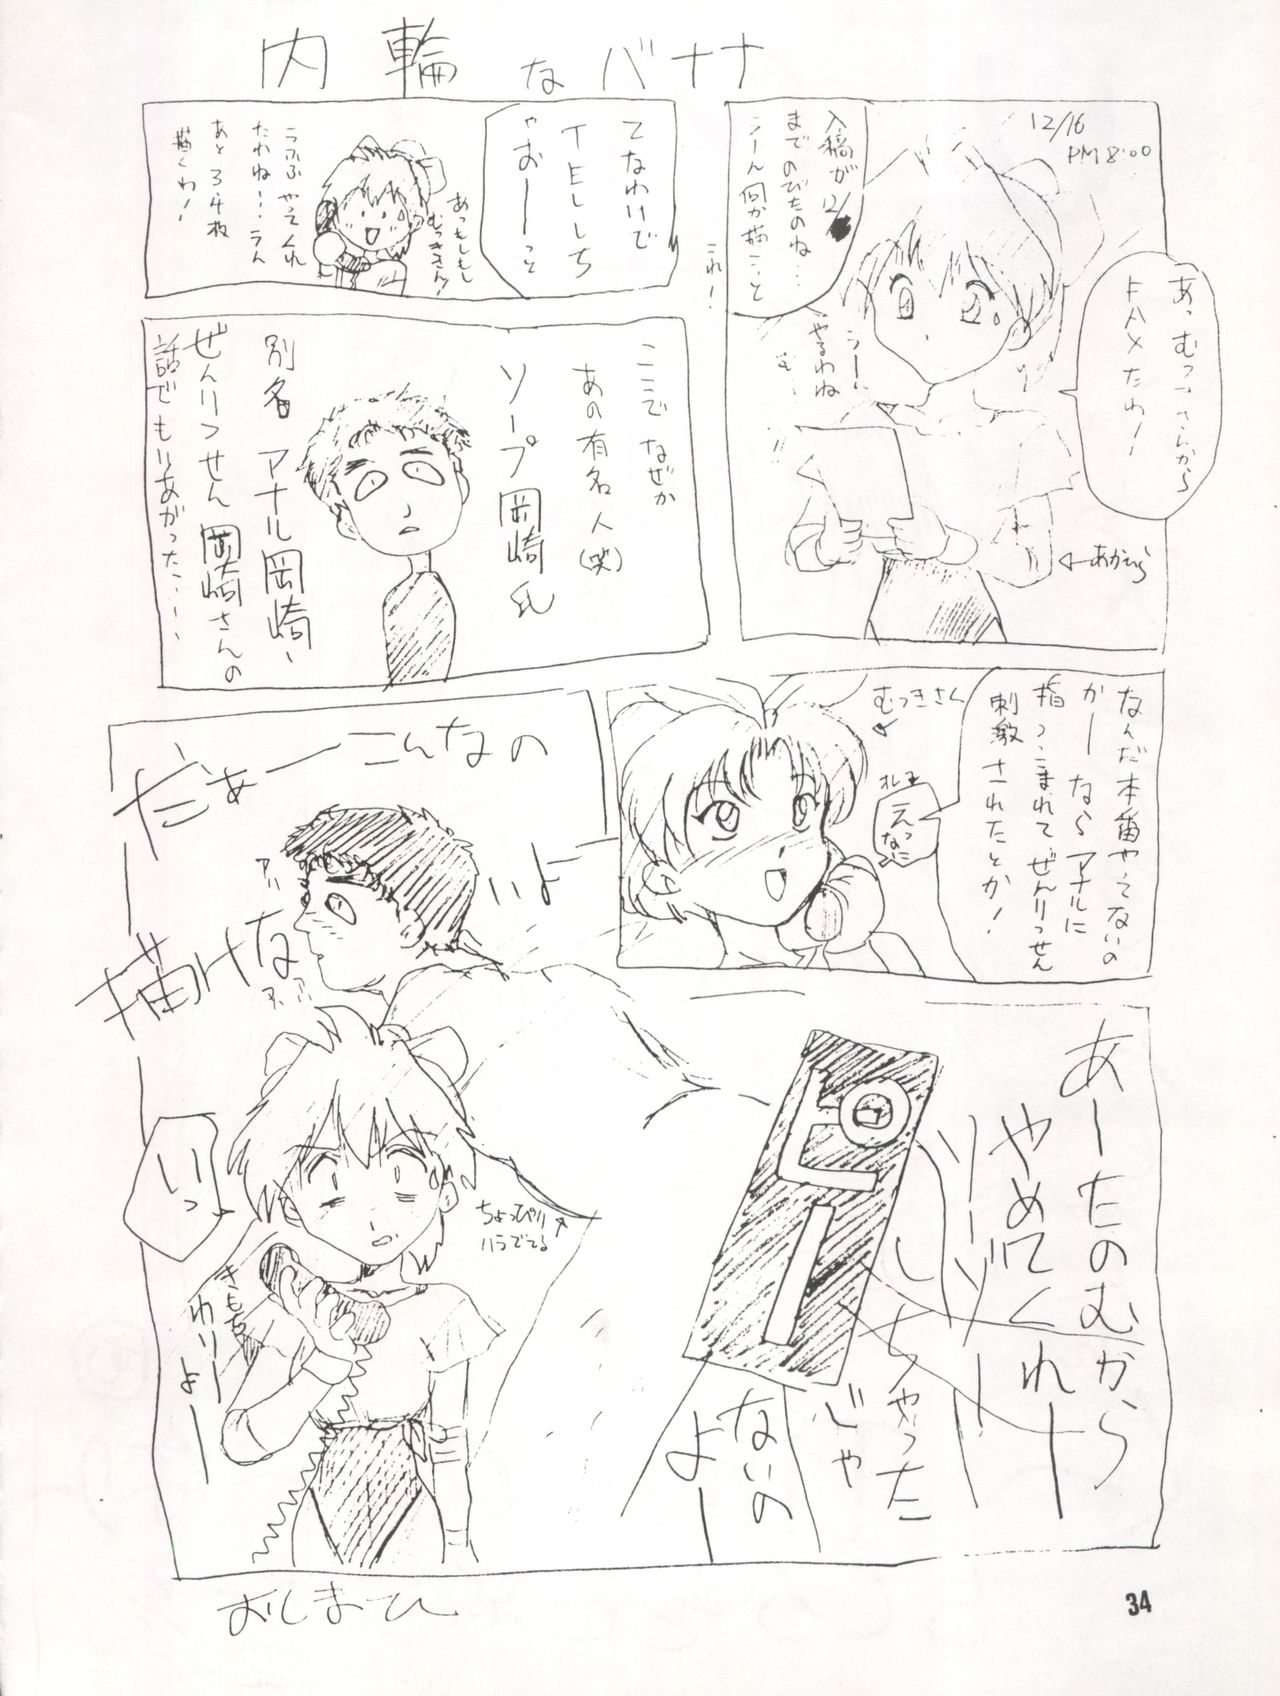 内輪なバナナ
12/16
PM 8:00
あっむつきさんから
FAXだわ!
入稿が12/
までのびたのね...
うーん何か描こっと
うー
やるわね
む...
これ!
←あかほり
てなわけで
TELしち
ゃおーーっと
あっもしもし
むつきさん!
うふふやってくれ
たわね...うん
あと34枚
描くわ!
ここでなぜか
あの有名人(笑)
ソープ岡崎氏
別名アナル岡崎、
ぜんりつせん岡崎さんの
話でもりあがった....
なんだ本番やってないの
かーならアナルに
指つっこまれてぜんりっせん
刺激されたとか!
むつきさん
えっ
なに
だぁーこんなの
描けないよ
アッ
アッ
アッ
あーたのむから
やめてくれー
ソーゾー
しちゃった
じゃ
ないの
よー
ピー
ちょっぴり
ハラでてる
いっ
きもち
わりー
よー
おしまひ
34